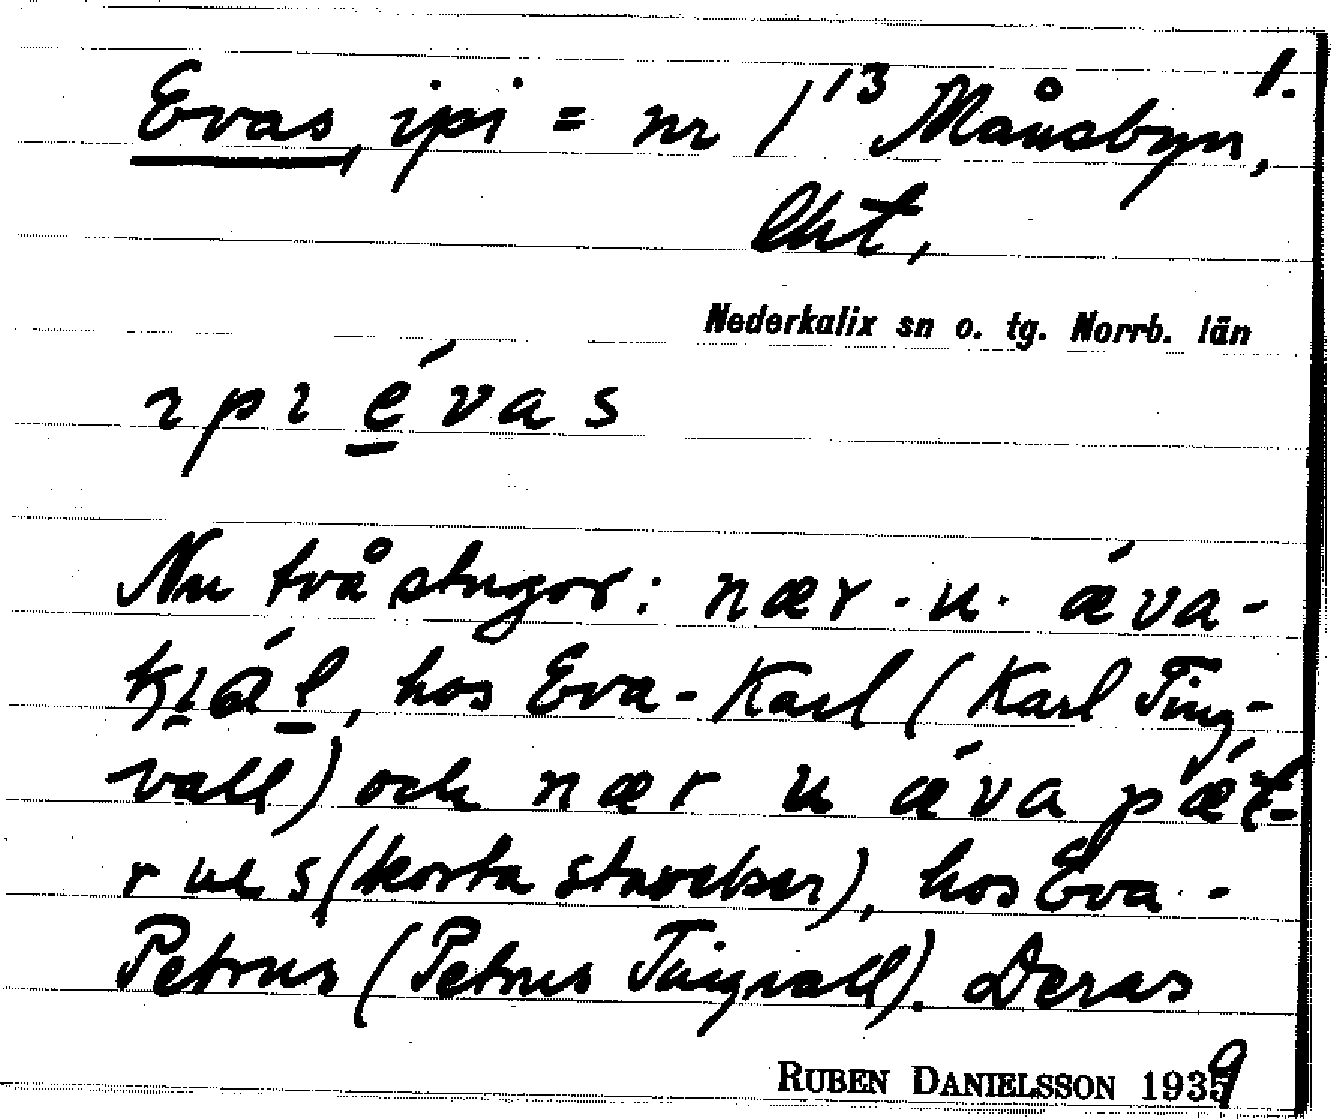 1.
Evas, ipi = nr 1¹³ Månsbyn,
Nederkalix sn o. tg. Norrb. län
ıpı é̱vas
Nu två stugor: nær · u · ǽva-
kı̯ɑ́l̠, hos Eva-Karl (Karl Ting-
vall) och nær u ǽva pǽt̠-
rus (korta stavelser), hos Eva-
Petrus (Petrus Tingvall). Deras
RUBEN DANIELSSON 1939